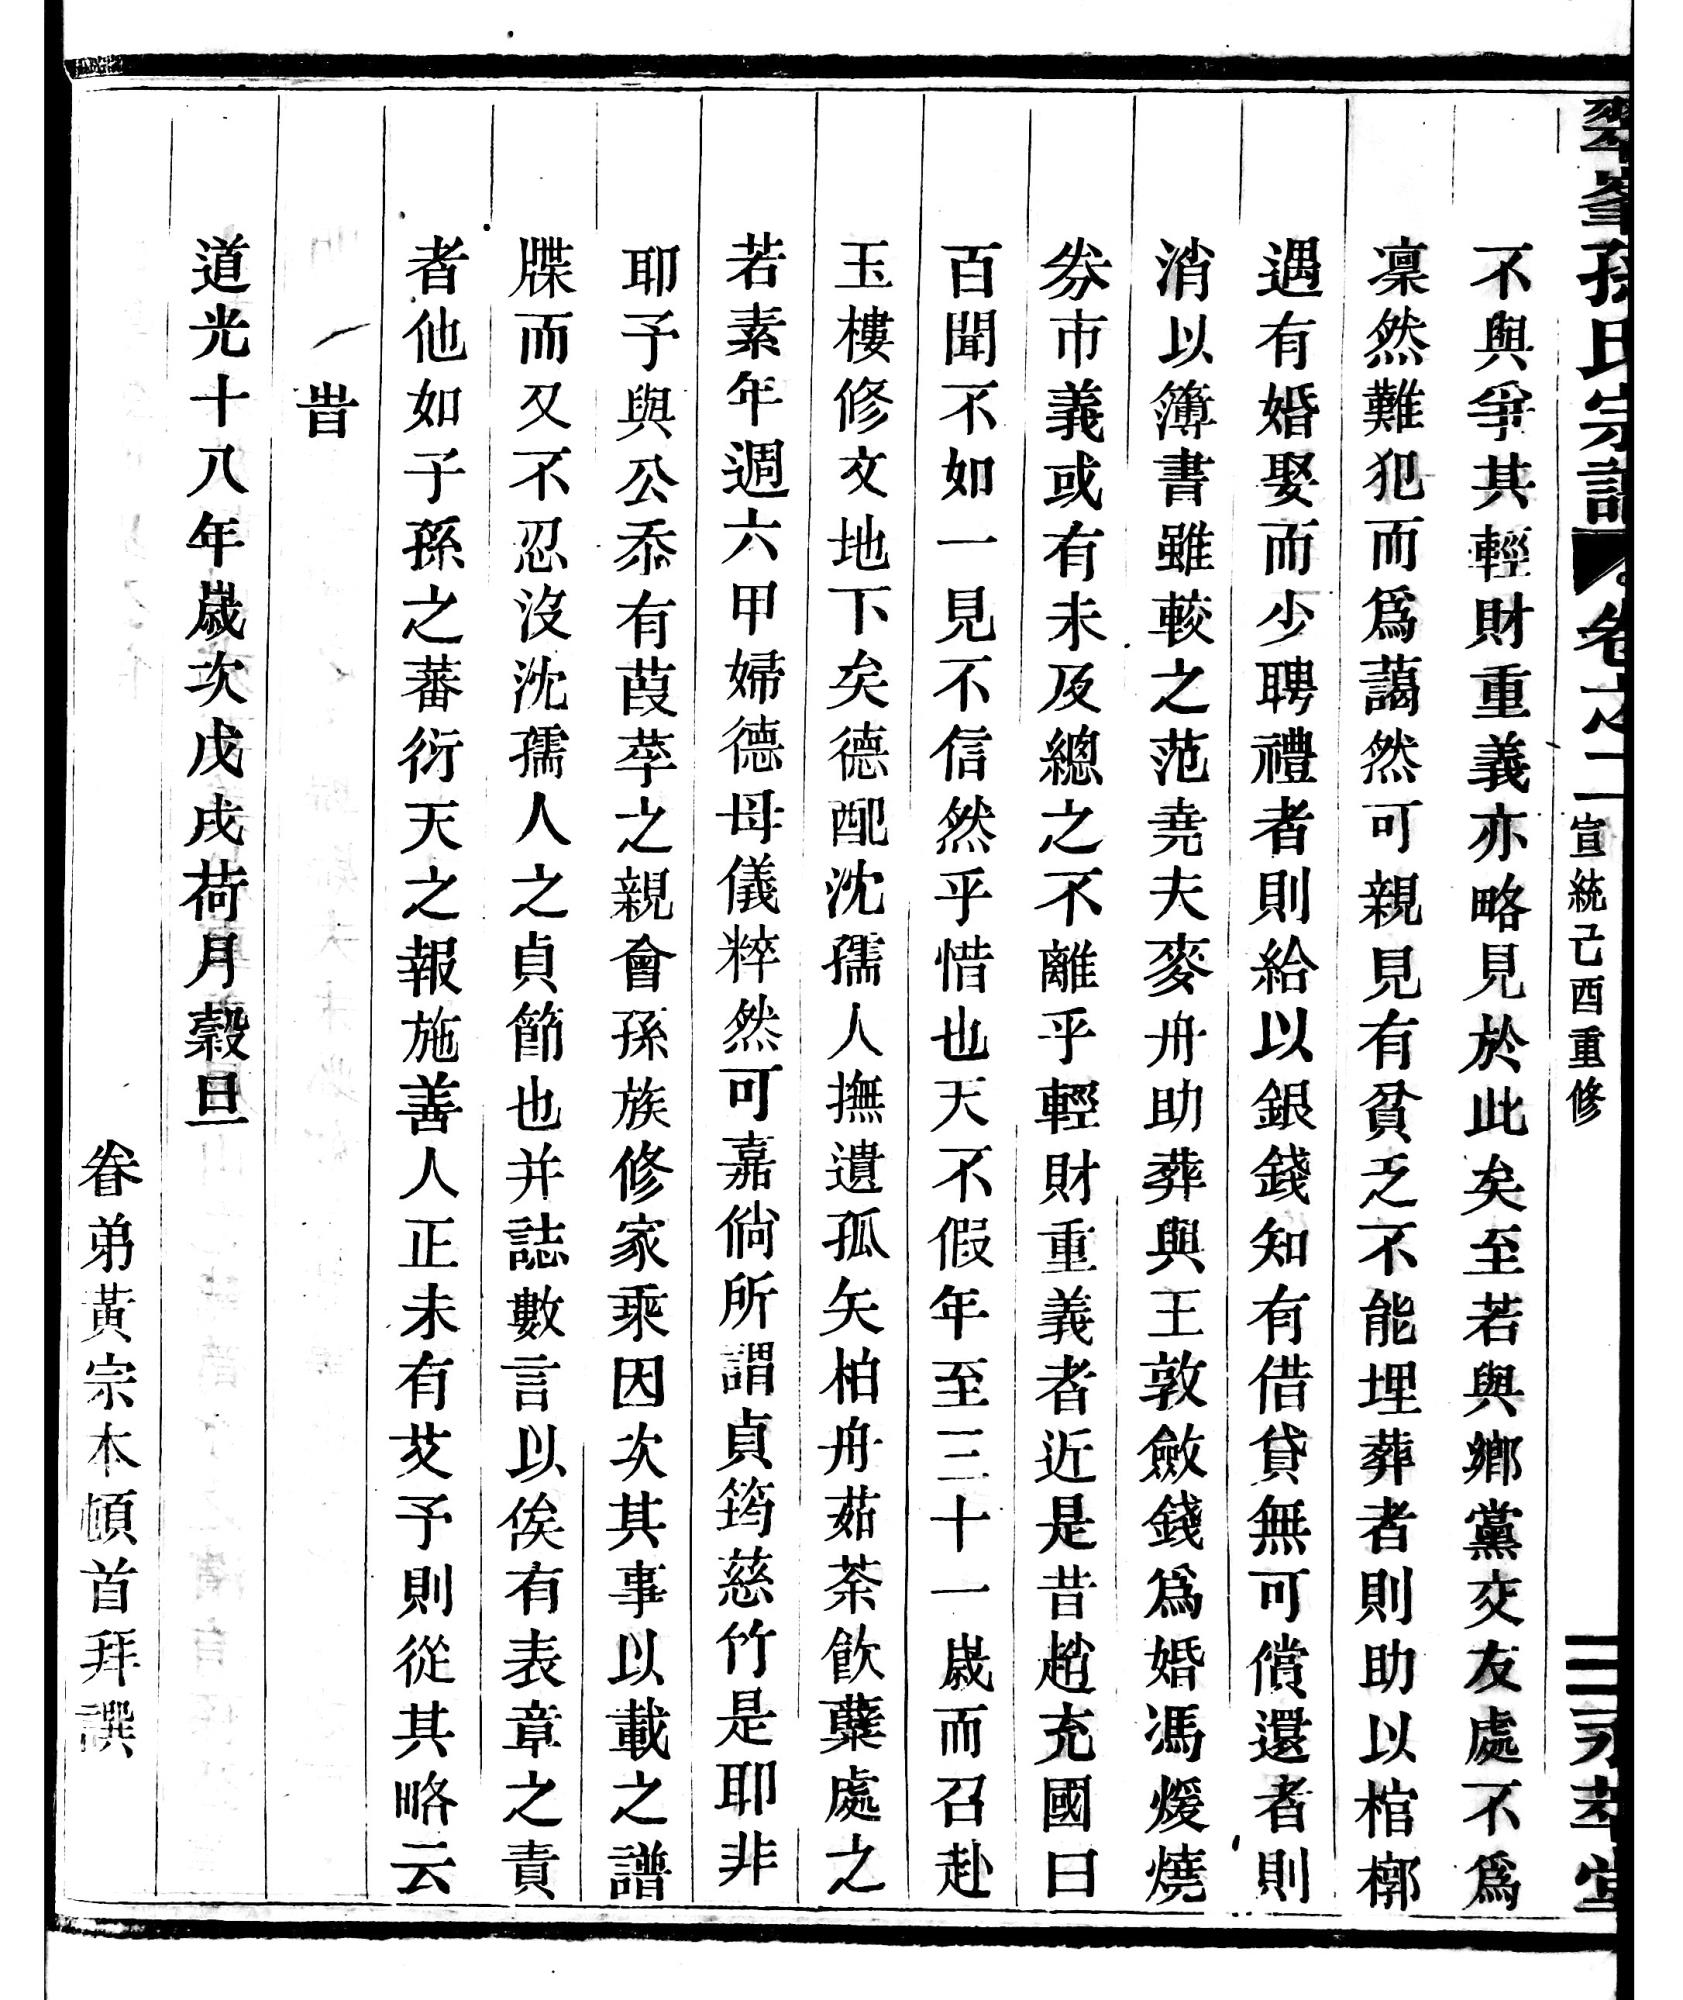 翠峯孫氏宗譜 卷之二 宣統己酉重修 三 永萃堂
不與爭其輕財重義亦略見於此矣至若與鄉黨交友處不爲
凜然難犯而爲藹然可親見有貧乏不能埋葬者則助以棺槨
遇有婚娶而少聘禮者則給以銀錢知有借貸無可償還者則
消以簿書雖較之范堯夫麥舟助葬與王敦斂錢爲婚馮煖燒
券市義或有未及總之不離乎輕財重義者近是昔趙充國曰
百聞不如一見不信然乎惜也天不假年至三十一歲而召赴
玉樓修文地下矣德配沈孺人撫遺孤矢柏舟茹荼飲蘗處之
若素年週六甲婦德母儀粹然可嘉倘所謂貞筠慈竹是耶非
耶予與公忝有葭莩之親會孫族修家乘因次其事以載之譜
牒而又不忍沒沈孺人之貞節也并誌數言以俟有表章之責
者他如子孫之蕃衍天之報施善人正未有艾予則從其略云
旹
道光十八年歲次戊戌荷月穀旦
眷弟黃宗本頓首拜譔